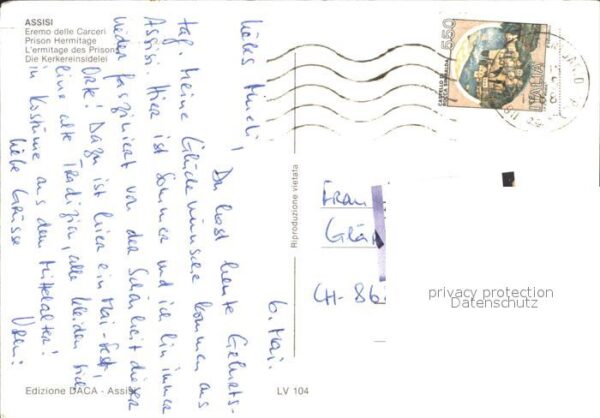 ASSISI
Eremo delle Carceri
Prison Hermitage
L'ermitage des Prisons
Die Kerkereinsidelei
6. Mai.
Liebes Ruedi,
Du hast heute Geburts-
tag. Meine Glückwünsche kommen aus
Assisi. Hier ist Sommer und ich bin immer
wieder fasziniert von der Schönheit dieser
Orte! Dazu ist hier ein Mai-Fest,
eine alte Tradizion, alle kleiden sich
in Kostüme aus dem Mittelalter!
Liebe Grüsse
Vreni
Riproduzione vietata
550
ITALIA
Frau
CH-86
privacy protection
Datenschutz
Edizione DACA - Assisi
LV 104